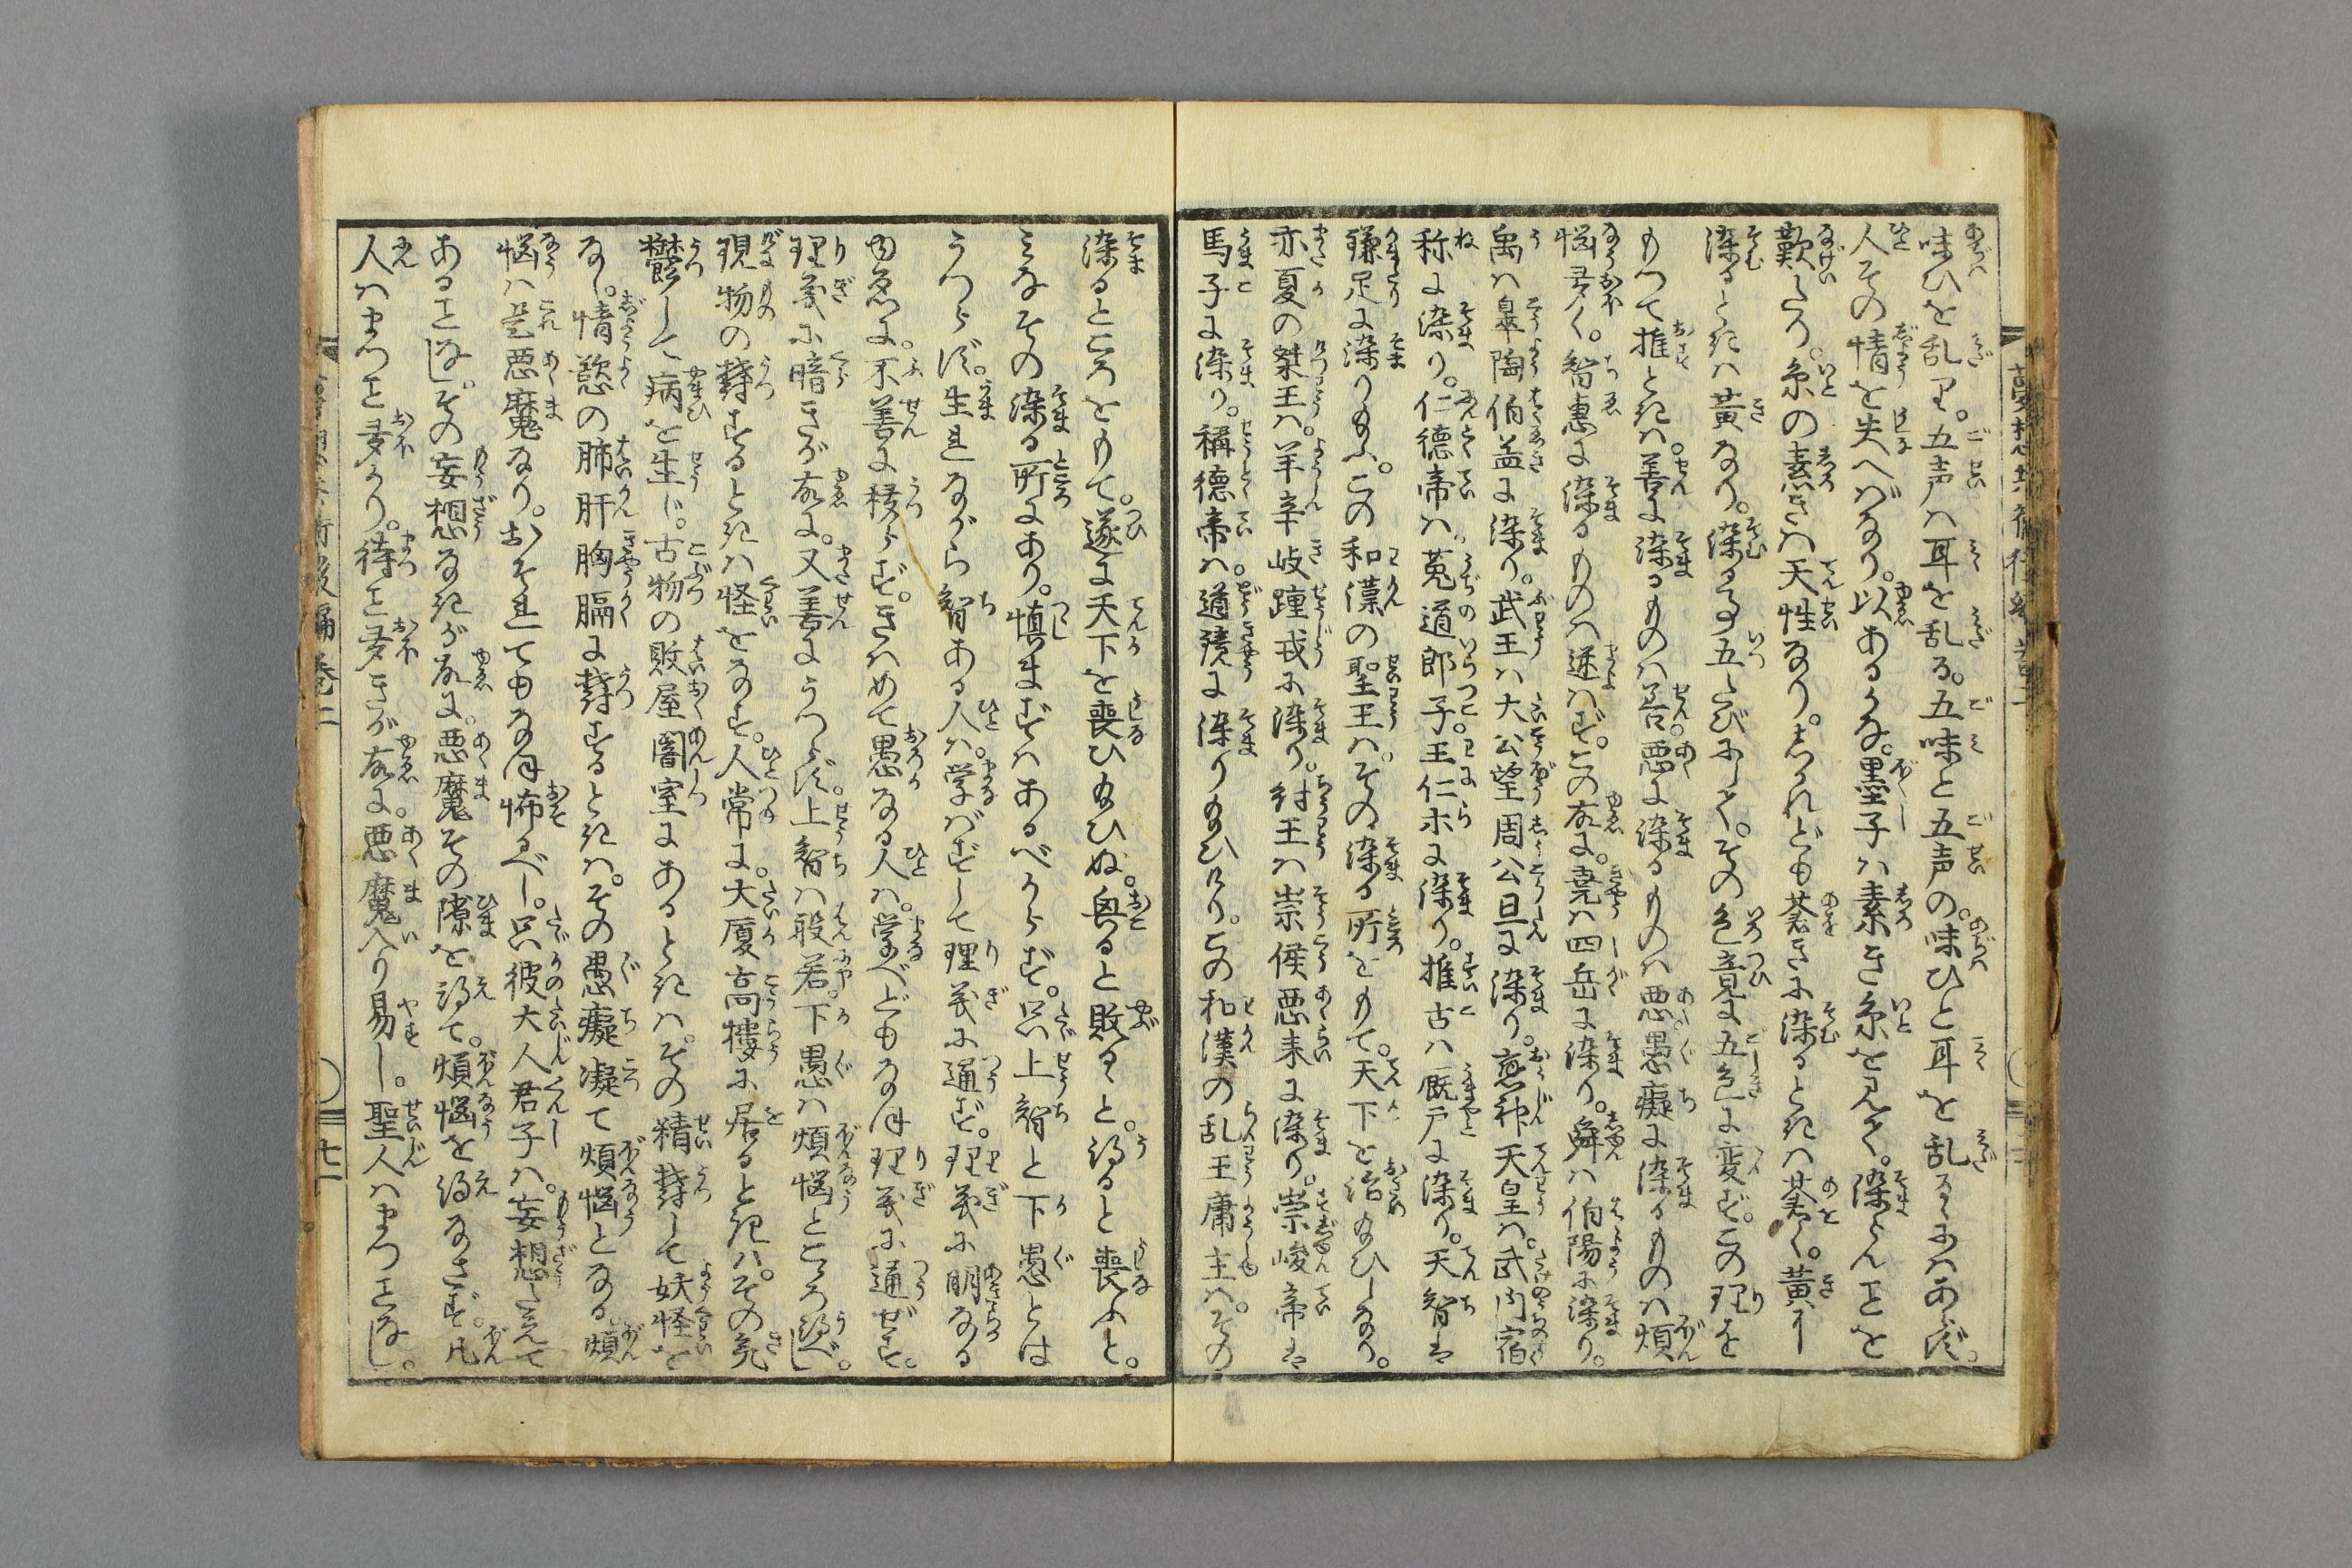 味ひを乱り。五声ハ耳を乱る。五味と五声の。味ひと耳を乱るにハあらず。
人その情を失へバなり。以あるかな。墨子ハ素き糸を見て。染んことを
歎たり。糸の素きハ天性なり。されども蒼きに染るときハ蒼く。黄に
染るときハ黄なり。染る事五たびにして。その色竟に五色に変ず。この理を
もつて推ときハ。善に染るものハ善。悪に染るものハ悪。愚癡に染るものハ煩
悩多く。智恵に染るものハ迷はず。この故に。堯ハ四岳に染り。舜ハ伯陽に染り。
禹ハ皐陶伯益に染り。武王ハ大公望周公旦に染り。應神天皇ハ。武内宿
祢に染り。仁徳帝ハ。菟道郎子。王仁木に染り。推古ハ厩戸に染り。天智は
鎌足に染り給ふ。この和漢の聖王ハ。その染る所をもて。天下を治給ひしなり。
亦夏の桀王ハ。羊辛岐踵戎に染り。紂王ハ崇侯悪来に染り。崇峻帝は
馬子に染り。稱徳帝ハ。道鏡に染り給ひけり。この和漢の乱王庸主ハ。その
染るところをもて。遂に天下を喪ひ給ひぬ。興ると敗るゝと。得ると喪ふと。
みなその染る所にあり。慎まずハあるべからず。只上智と下愚とは
うつらず。生れながら智ある人ハ。学バずして理義に通ず。理義に明なる
ゆゑに。不善に移らず。きはめて愚なる人ハ。学べどもなほ理義に通ぜず。
理義に暗きが故に。又善にうつらず。上智ハ般若。下愚ハ煩悩ところ得べし。
現物の鬱するときハ怪をなす。人常に。大厦高樓に居るときハ。その気
鬱して病を生じ。古物の敗屋闇室にあるときハ。その精鬱して妖怪を
なし。情慾の肺肝胸膈に鬱するときハ。その愚癡凝て煩悩となる。煩
悩ハ是悪魔なり。おそれてもなほ怖るべし。只彼大人君子ハ。妄想たえて
あることなし。その妄想なきが故に。悪魔その隙を得て。煩悩を得なさず。凡
人ハまつこと多かり。待こと多きが故に。悪魔入り易し。聖人ハまつことなし。